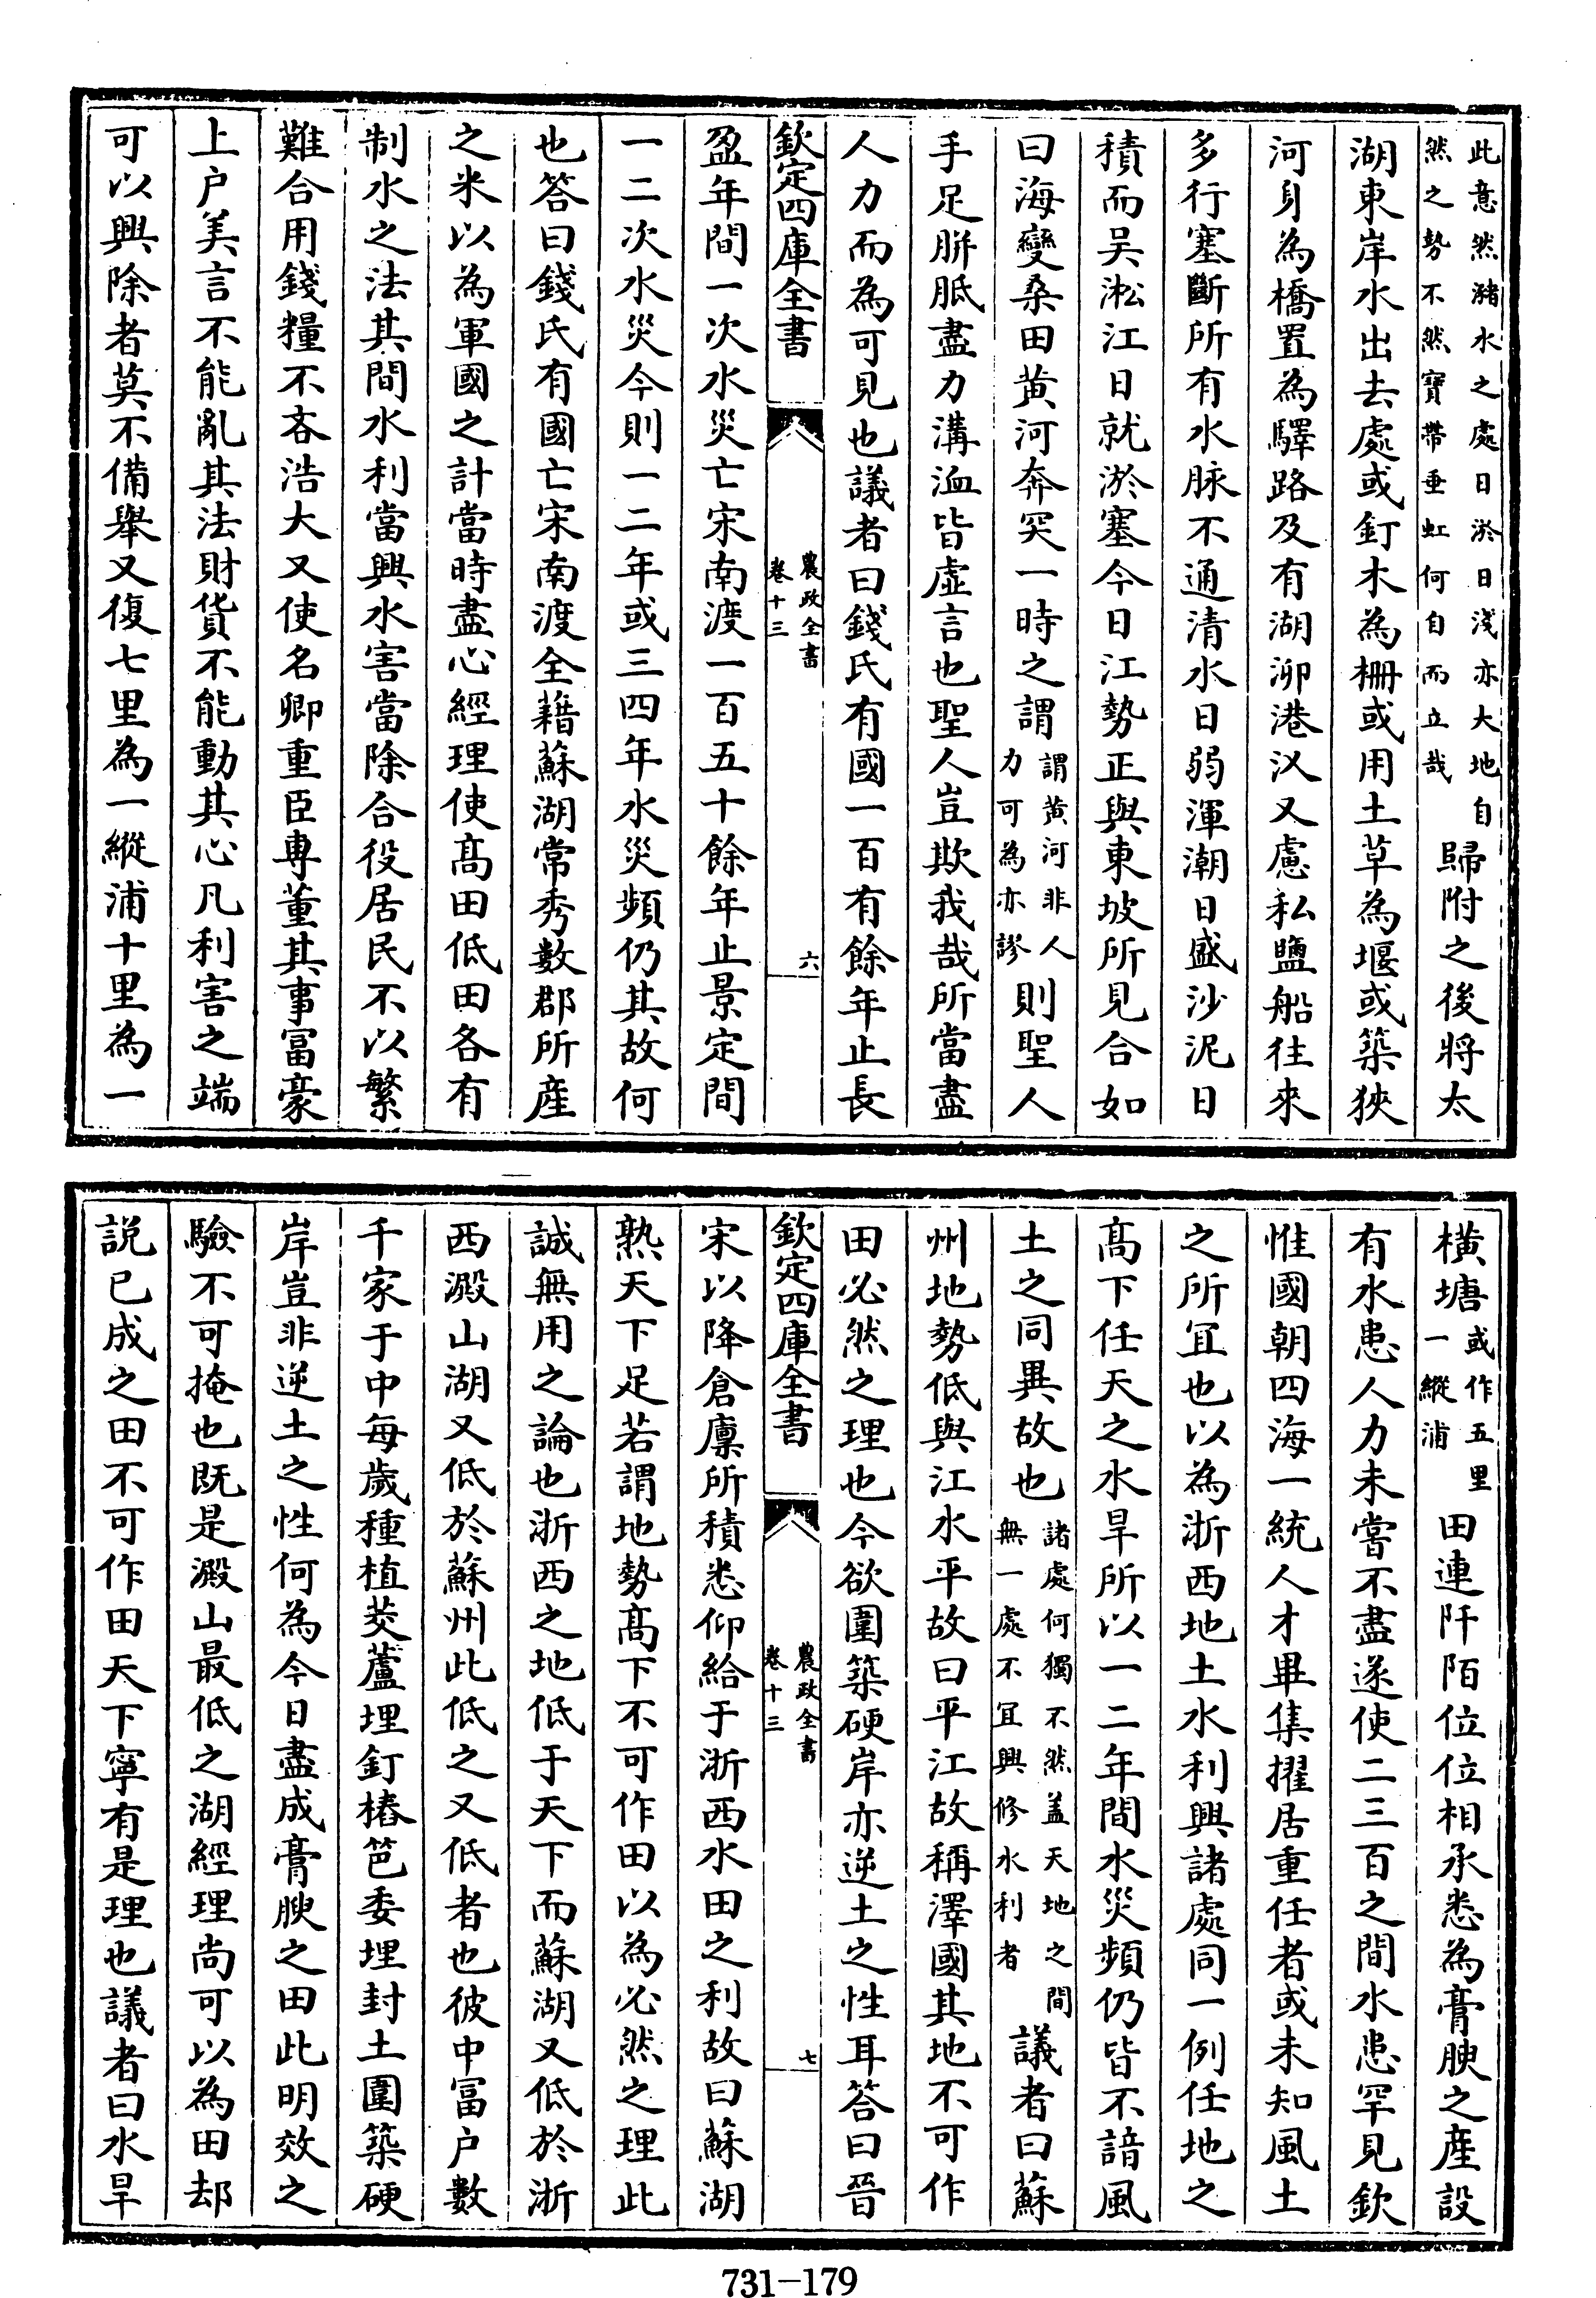 此意然瀦水之處日淤日淺亦大地自
然之勢不然寶帶垂虹何自而立哉
歸附之後將太
湖東岸水出去處或釘木為柵或用土草為堰或築狹
河身為橋置為驛路及有湖泖港汊又慮私鹽船往來
多行塞斷所有水脉不通清水日弱渾潮日盛沙泥日
積而吳淞江日就淤塞今日江勢正與東坡所見合如
曰海變桑田黃河奔突一時之謂
謂黃河非人
力可為亦謬
則聖人
手足胼胝盡力溝洫皆虛言也聖人豈欺我哉所當盡
人力而為可見也議者曰錢氏有國一百有餘年止長
欽定四庫全書
農政全書
卷十三
六
盈年間一次水災亡宋南渡一百五十餘年止景定間
一二次水災今則一二年或三四年水災頻仍其故何
也答曰錢氏有國亡宋南渡全藉蘇湖常秀數郡所產
之米以為軍國之計當時盡心經理使高田低田各有
制水之法其間水利當興水害當除合役居民不以繁
難合用錢糧不吝浩大又使名卿重臣專董其事富豪
上户美言不能亂其法財貨不能動其心凡利害之端
可以興除者莫不備舉又復七里為一縱浦十里為一
橫塘
或作五里
一縱浦
田連阡陌位位相承悉為膏腴之產設
有水患人力未嘗不盡遂使二三百之間水患罕見欽
惟國朝四海一統人才畢集擢居重任者或未知風土
之所宜也以為浙西地土水利興諸處同一例任地之
高下任天之水旱所以一二年間水災頻仍皆不諳風
土之同異故也
諸處何獨不然蓋天地之間
無一處不宜興修水利者
議者曰蘇
州地勢低與江水平故曰平江故稱澤國其地不可作
田必然之理也今欲圍築硬岸亦逆土之性耳答曰晉
欽定四庫全書
農政全書
卷十三
七
宋以降倉廩所積悉仰給于浙西水田之利故曰蘇湖
熟天下足若謂地勢高下不可作田以為必然之理此
誠無用之論也浙西之地低于天下而蘇湖又低於浙
西澱山湖又低於蘇州此低之又低者也彼中富户數
千家于中每歲種植茭蘆埋釘樁笆委埋封土圍築硬
岸豈非逆土之性何為今日盡成膏腴之田此明效之
驗不可掩也既是澱山最低之湖經理尚可以為田却
説已成之田不可作田天下寧有是理也議者曰水旱
731-179